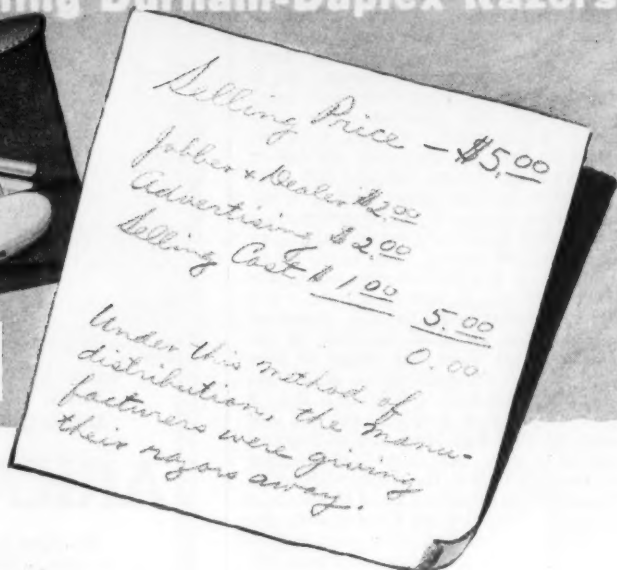 Durham-Duplex Razors
Selling Price — $5.00
Jobber & Dealer $2.00
Advertising $2.00
Selling Cost $1.00 5.00
0.00
Under this method of
distribution, the manu-
facturers were giving
their razors away.